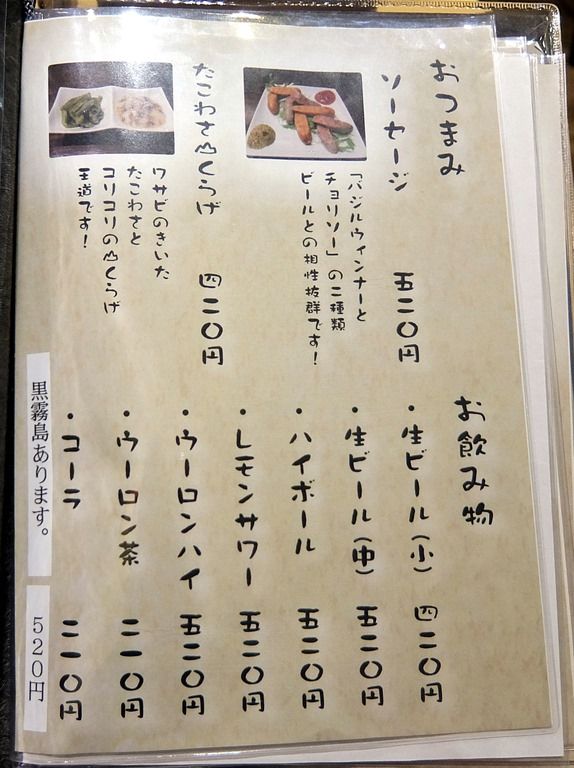 おつまみ
ソーセージ
五二〇円
「バジルウィンナーと
チョリソー」の二種類
ビールとの相性抜群です！
たこわさ山くらげ
四二〇円
ワサビのきいた
たこわさと
コリコリの山くらげ
王道です！
お飲み物
・生ビール（小） 四二〇円
・生ビール（中） 五二〇円
・ハイボール 五二〇円
・レモンサワー 五二〇円
・ウーロンハイ 五二〇円
・ウーロン茶 二一〇円
・コーラ 二一〇円
黒霧島あります。 520円